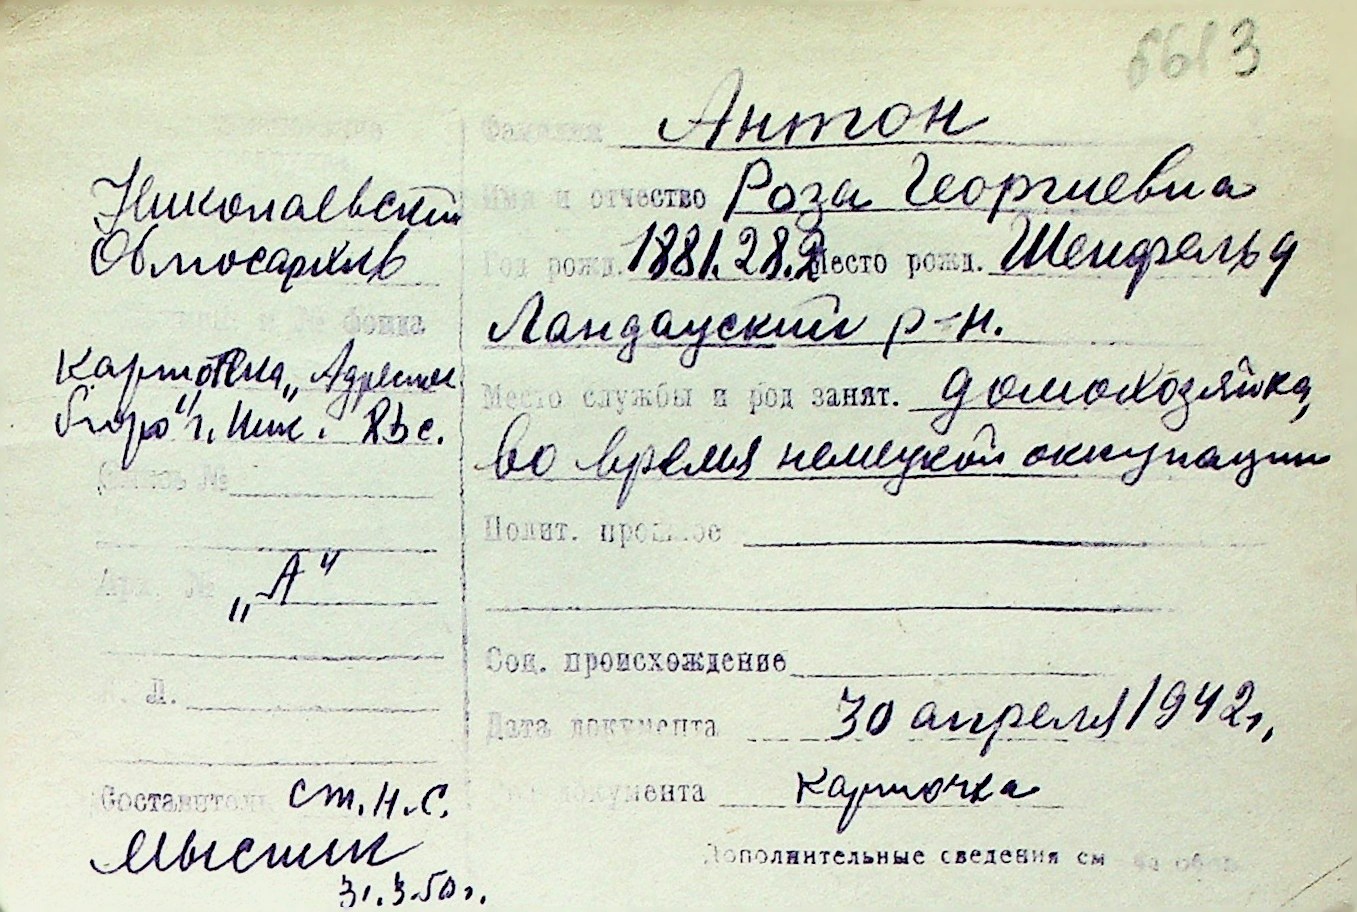 6613
Фамилия Антон
Имя и отчество Роза Георгиевна
Год рожд. 1881.28.2 Место рожд. Шенфельд
Ландауский р-н.
Место службы и род занят. домохозяйка,
во время немецкой оккупации
Полит. прошлое
Соц. происхождение
Дата документа 30 апреля 1942 г.
документа карточка
Дополнительные сведения см на обор.
Николаевский
Облгосархив
и № фонда
картотека „Адресное
бюро" г. Ник.
Опись №
Арх. № „А"
Л.
Составитель ст. н. с.
31.3.50 г.